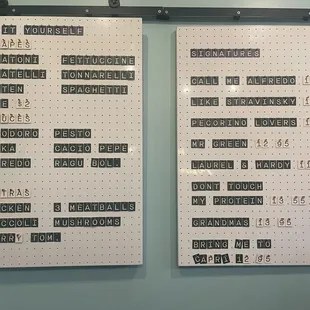 IT YOURSELF
APES
ATONI FETTUCCINE
ATELLI TONNARELLI
TEN SPAGHETTI
E
UCES
ODORO PESTO
KA CACIO PEPE
REDO RAGU BOL.
TRAS
CKEN 3 MEATBALLS
CCOLI MUSHROOMS
RRY TOM.
SIGNATURES
CALL ME ALFREDO
LIKE STRAVINSKY
PECORINO LOVERS
MR GREEN
LAUREL & HARDY
DONT TOUCH
MY PROTEIN
GRANDMAS
BRING ME TO
CAPRI